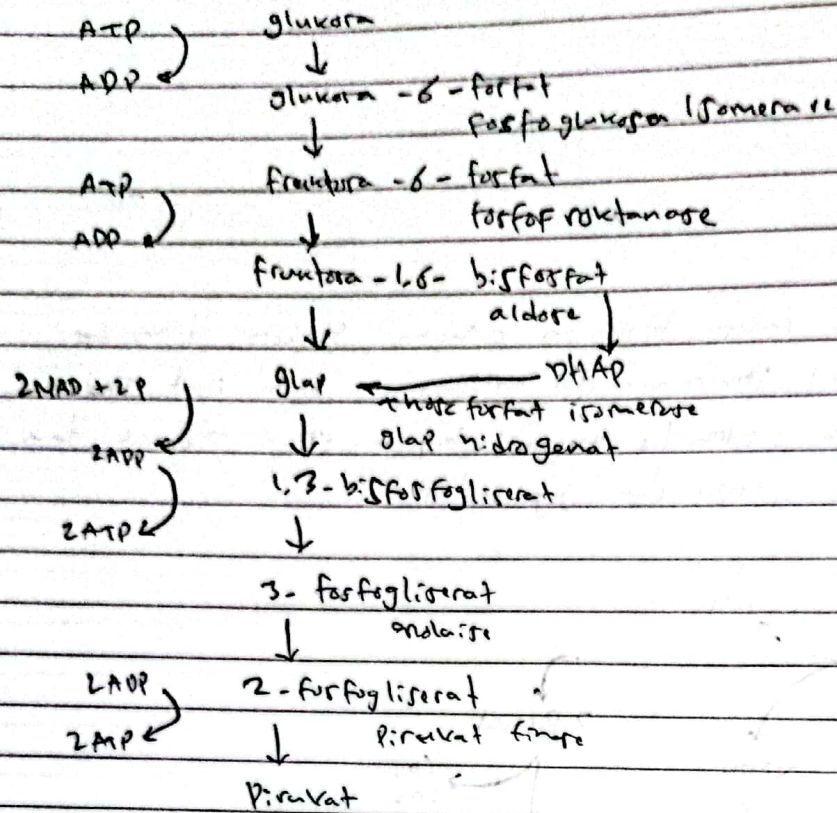 ATP glukosa
ADP glukosa - 6 - fosfat
fosfoglukosa isomerase
ATP fruktosa - 6 - fosfat
ADP fosfofroktanase
fruktosa - 1,6 - bisfosfat
aldose
2NAD + 2P glap DHAP
those fosfat isomerase
2ADP glap hidrogenat
1,3 - bisfosfogliserat
2ATP
3 - fosfogliserat
enolaise
2ADP 2 - fosfogliserat
2ATP Pirukat finase
Pirukat